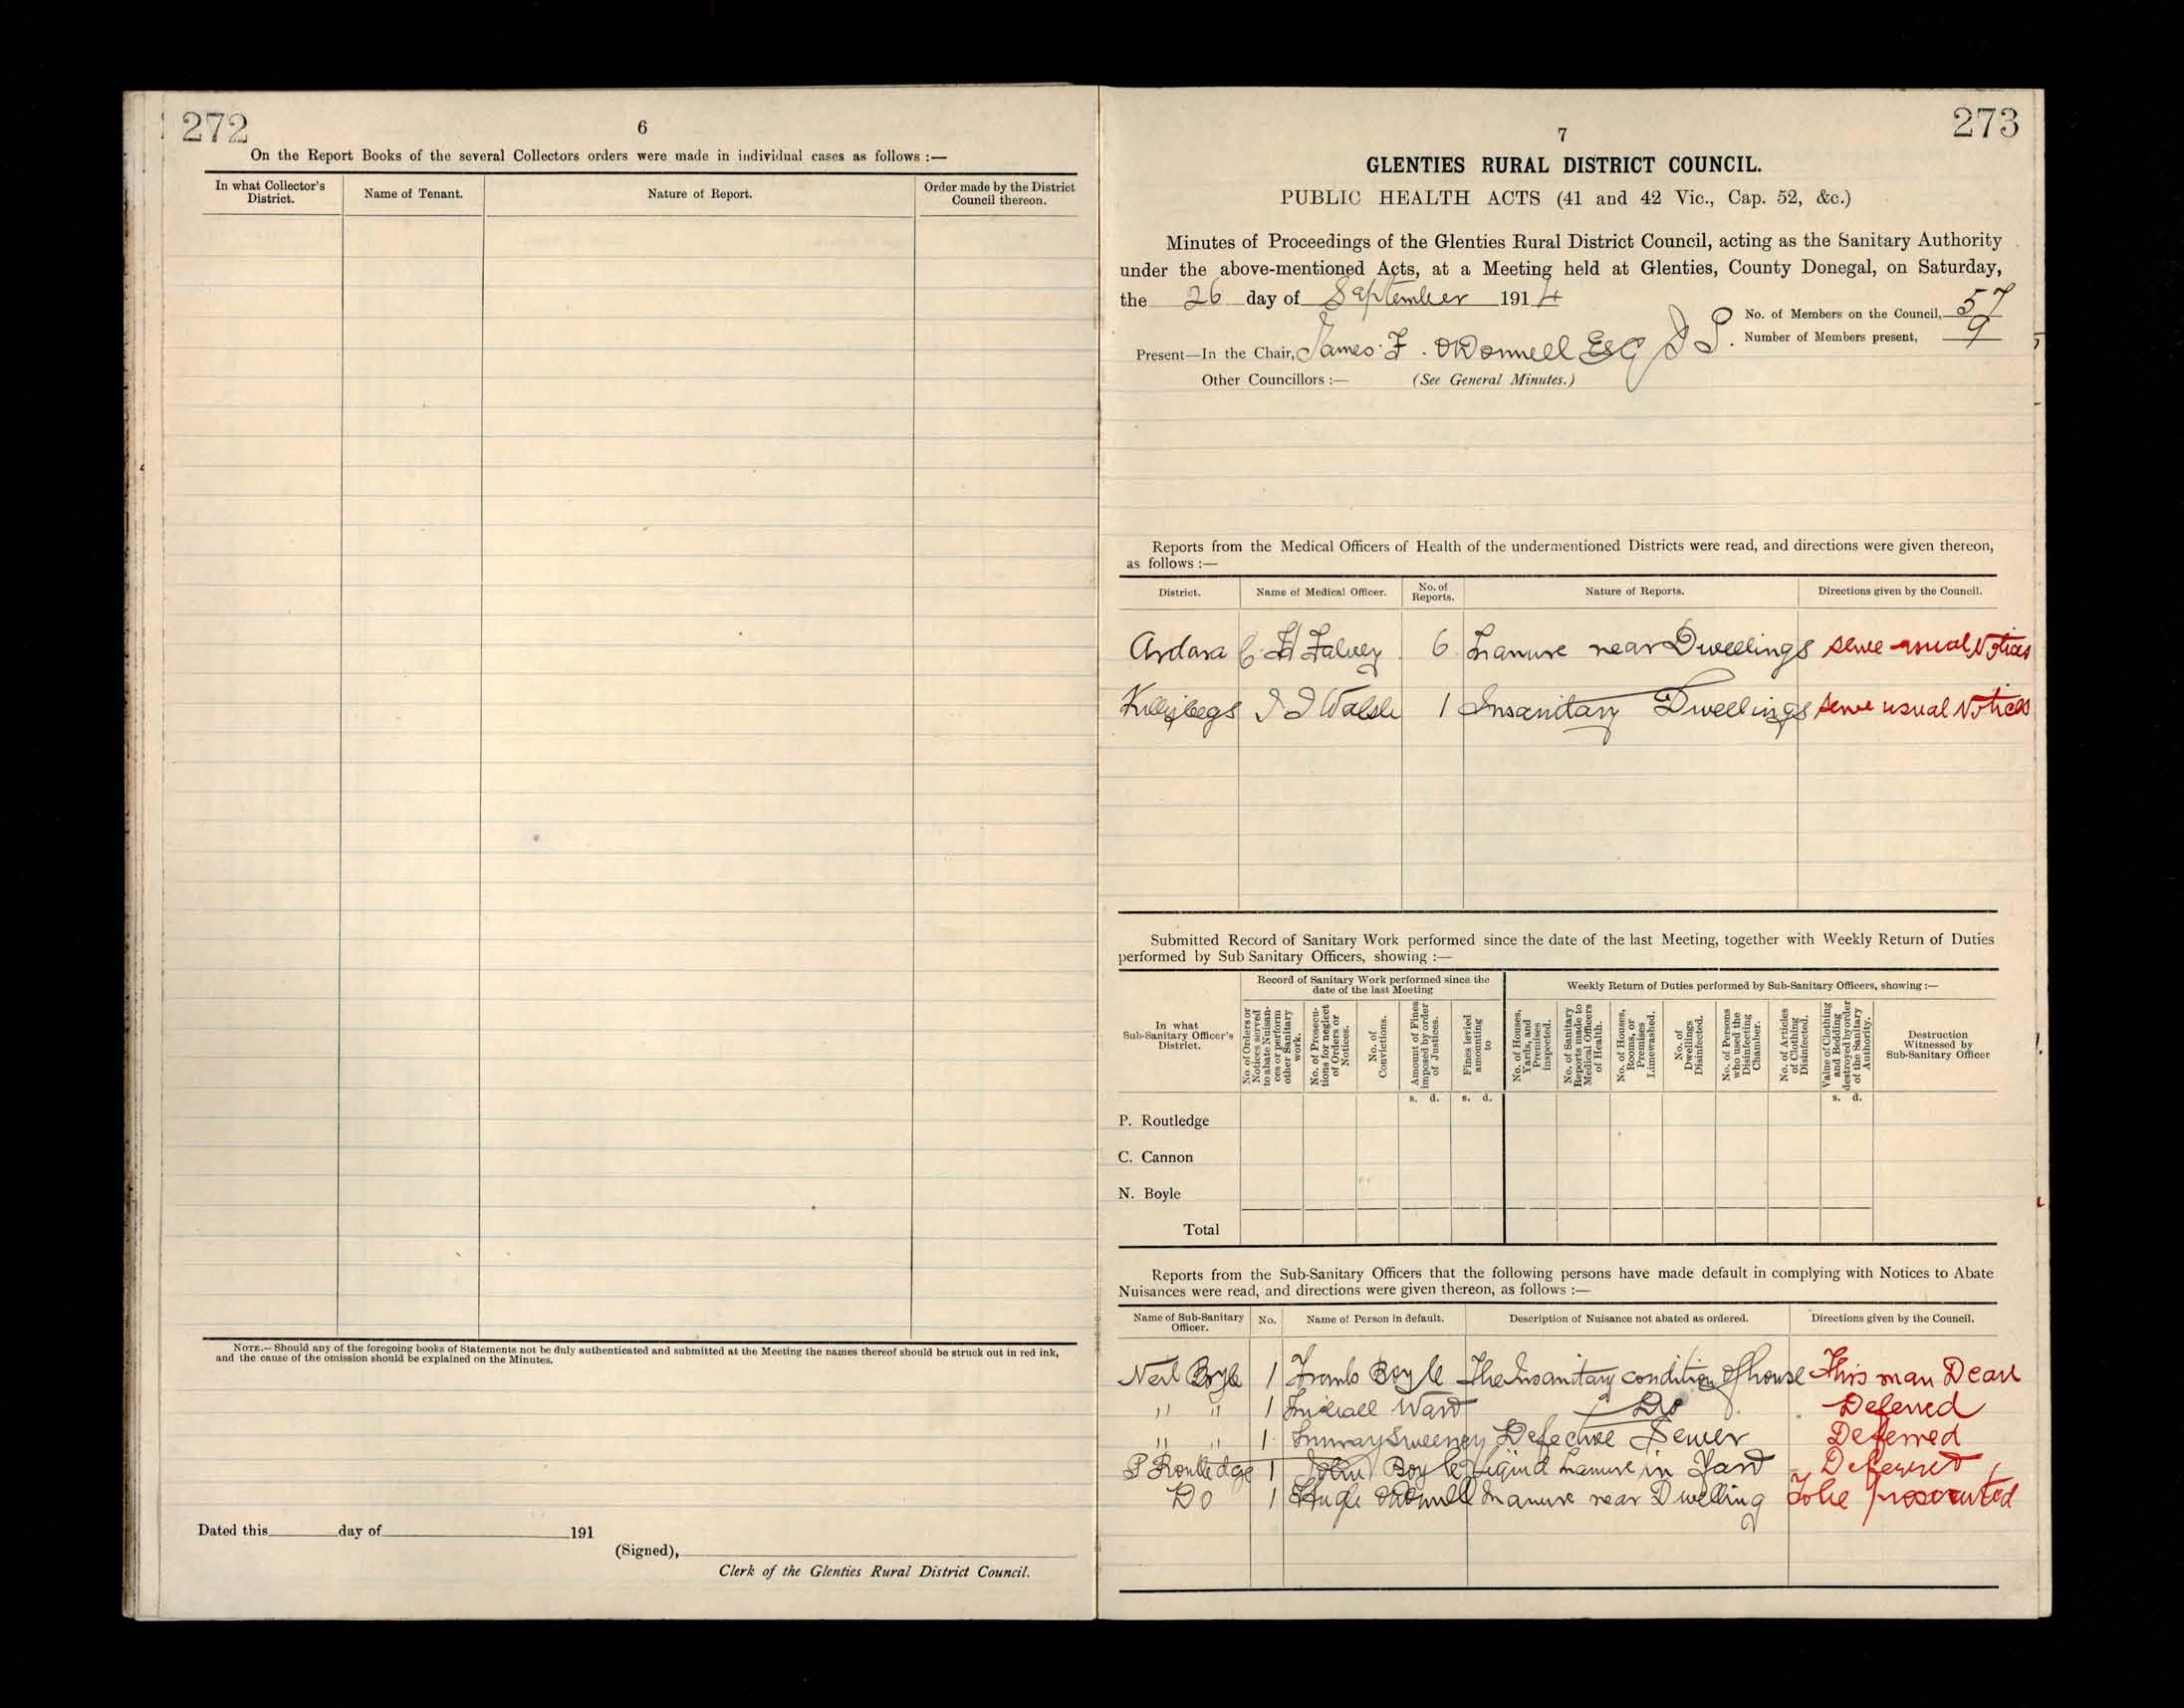 272
6
On the Report Books of the several Collectors orders were made in individual cases as follows :—
In what Collector's District.
Name of Tenant.
Nature of Report.
Order made by the District Council thereon.
NOTE.—Should any of the foregoing books of Statements not be duly authenticated and submitted at the Meeting the names thereof should be struck out in red ink,
and the cause of the omission should be explained on the Minutes.
Dated this day of 191
(Signed),
Clerk of the Glenties Rural District Council.
273
7
GLENTIES RURAL DISTRICT COUNCIL.
PUBLIC HEALTH ACTS (41 and 42 Vic., Cap. 52, &c.)
Minutes of Proceedings of the Glenties Rural District Council, acting as the Sanitary Authority
under the above-mentioned Acts, at a Meeting held at Glenties, County Donegal, on Saturday,
the 26 day of September 1914
No. of Members on the Council, 57
Number of Members present, 9
Present—In the Chair, James F. O'Donnell Esq J P.
Other Councillors :— (See General Minutes.)
Reports from the Medical Officers of Health of the undermentioned Districts were read, and directions were given thereon,
as follows :—
District.
Name of Medical Officer.
No. of Reports.
Nature of Reports.
Directions given by the Council.
Ardara C. H Falvey 6 Manure near Dwellings serve usual Notices
Killybegs J J Walsh 1 Insanitary Dwellings serve usual Notices
Submitted Record of Sanitary Work performed since the date of the last Meeting, together with Weekly Return of Duties
performed by Sub Sanitary Officers, showing :—
In what Sub-Sanitary Officer's District.
Record of Sanitary Work performed since the date of the last Meeting
Weekly Return of Duties performed by Sub-Sanitary Officers, showing :—
No. of Orders or Notices served to abate Nuisances or perform other Sanitary work.
No. of Prosecutions for neglect of Orders or Notices.
No. of Convictions.
Amount of Fines imposed by order of Justices.
Fines levied amounting to
No. of Houses, Yards, and Premises inspected.
No. of Sanitary Reports made to Medical Officers of Health.
No. of Houses, Rooms, or Premises Limewashed.
No. of Dwellings Disinfected.
No. of Persons who used the Disinfecting Chamber.
No. of Articles of Clothing Disinfected.
Value of Clothing and Bedding destroyed by order of the Sanitary Authority.
Destruction Witnessed by Sub-Sanitary Officer
s. d. s. d. s. d.
P. Routledge
C. Cannon
N. Boyle
Total
Reports from the Sub-Sanitary Officers that the following persons have made default in complying with Notices to Abate
Nuisances were read, and directions were given thereon, as follows :—
Name of Sub-Sanitary Officer.
No.
Name of Person in default.
Description of Nuisance not abated as ordered.
Directions given by the Council.
Neil Boyle 1 Frank Boyle The Insanitary condition of house This man Dead
" " 1 Michael Ward Do Deferred
" " 1 Sweeney Defective Sewer Deferred
P Routledge 1 John Boyle Liquid Manure in Yard Deferred
Do 1 Hugh O'Donnell Manure near Dwelling To be prosecuted